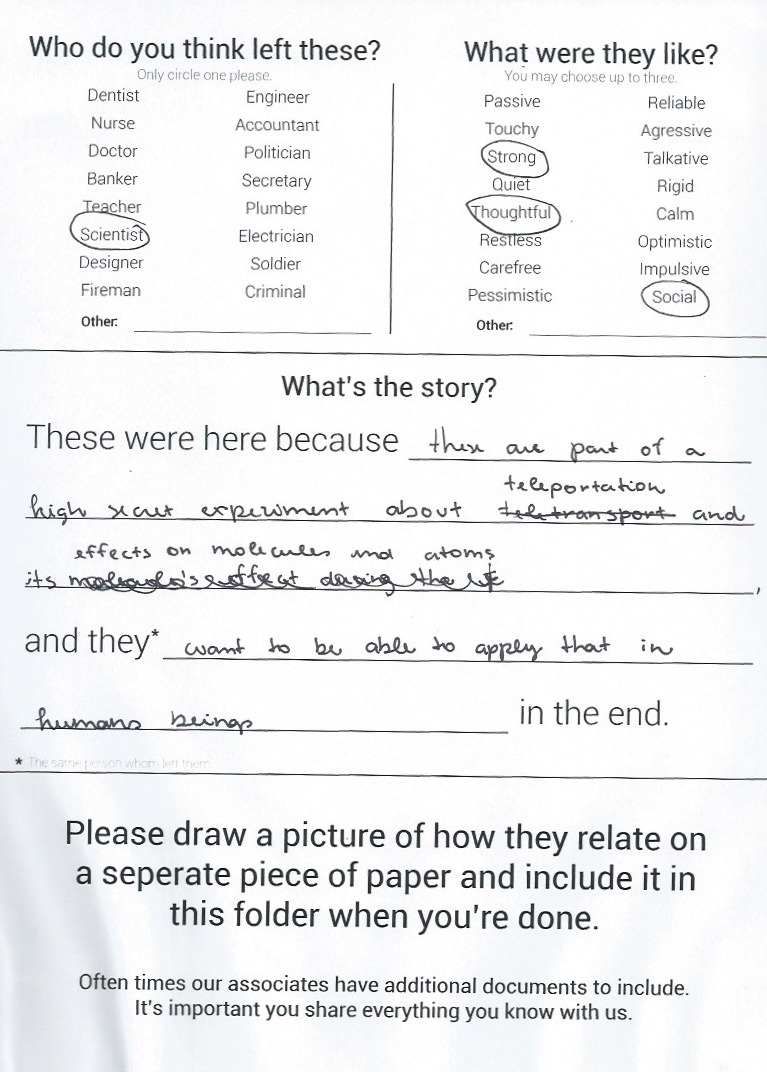 Who do you think left these?
Only circle one please.
Dentist
Nurse
Doctor
Banker
Teacher
Scientist
Designer
Fireman
Engineer
Accountant
Politician
Secretary
Plumber
Electrician
Soldier
Criminal
Other:
What were they like?
You may choose up to three.
Passive
Touchy
Strong
Quiet
Thoughtful
Restless
Carefree
Pessimistic
Reliable
Agressive
Talkative
Rigid
Calm
Optimistic
Impulsive
Social
Other:
What's the story?
These were here because these are part of a
teleportation
high secret experiment about teletransport and
effects on molecules and atoms
its effect during the ,
and they* want to be able to apply that in
humans beings in the end.
* The same person whom left them
Please draw a picture of how they relate on
a seperate piece of paper and include it in
this folder when you're done.
Often times our associates have additional documents to include.
It's important you share everything you know with us.